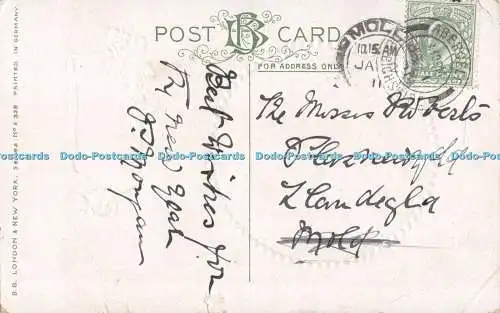 POST B CARD
FOR ADDRESS ONLY
MOLD
10.15 AM
JA
11
Best Wishes for
New Year
Morgan
The Misses Roberts
Llandegla
Mold
B.B. LONDON & NEW YORK. SERIES Nº X 328 PRINTED IN GERMANY.
Dodo-Postcards Dodo-Postcards Dodo-Postcards Dodo-Postcards Dodo-Postcards Dodo-Postcards